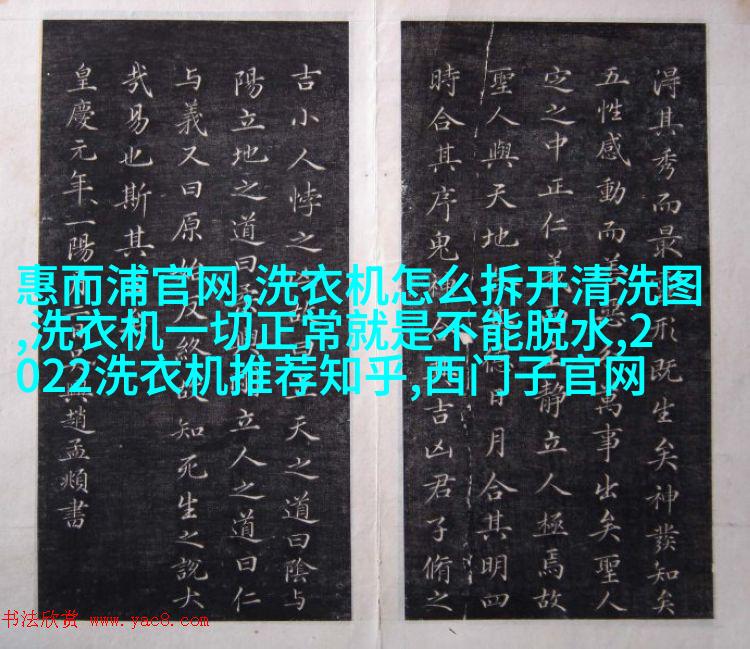 惠而浦官网,洗衣机怎么拆开清洗图
,洗衣机一切正常就是不能脱水,2
022洗衣机推荐知乎,西门子官网
淂其秀而最形既生矣神發知矣
五性感動而善萬事出矣聖人
定之中正仁靜立人極焉故
聖人與天地日月合其明四
時合其序鬼神合吉凶君子脩之
吉小人悖之故天之道曰陰与
陽立地之道曰立人之道曰仁
与義又曰原始反終知死生之說大
哉易也斯其
皇慶元年一陽趙孟頫書
书法欣赏 www.yac8.com